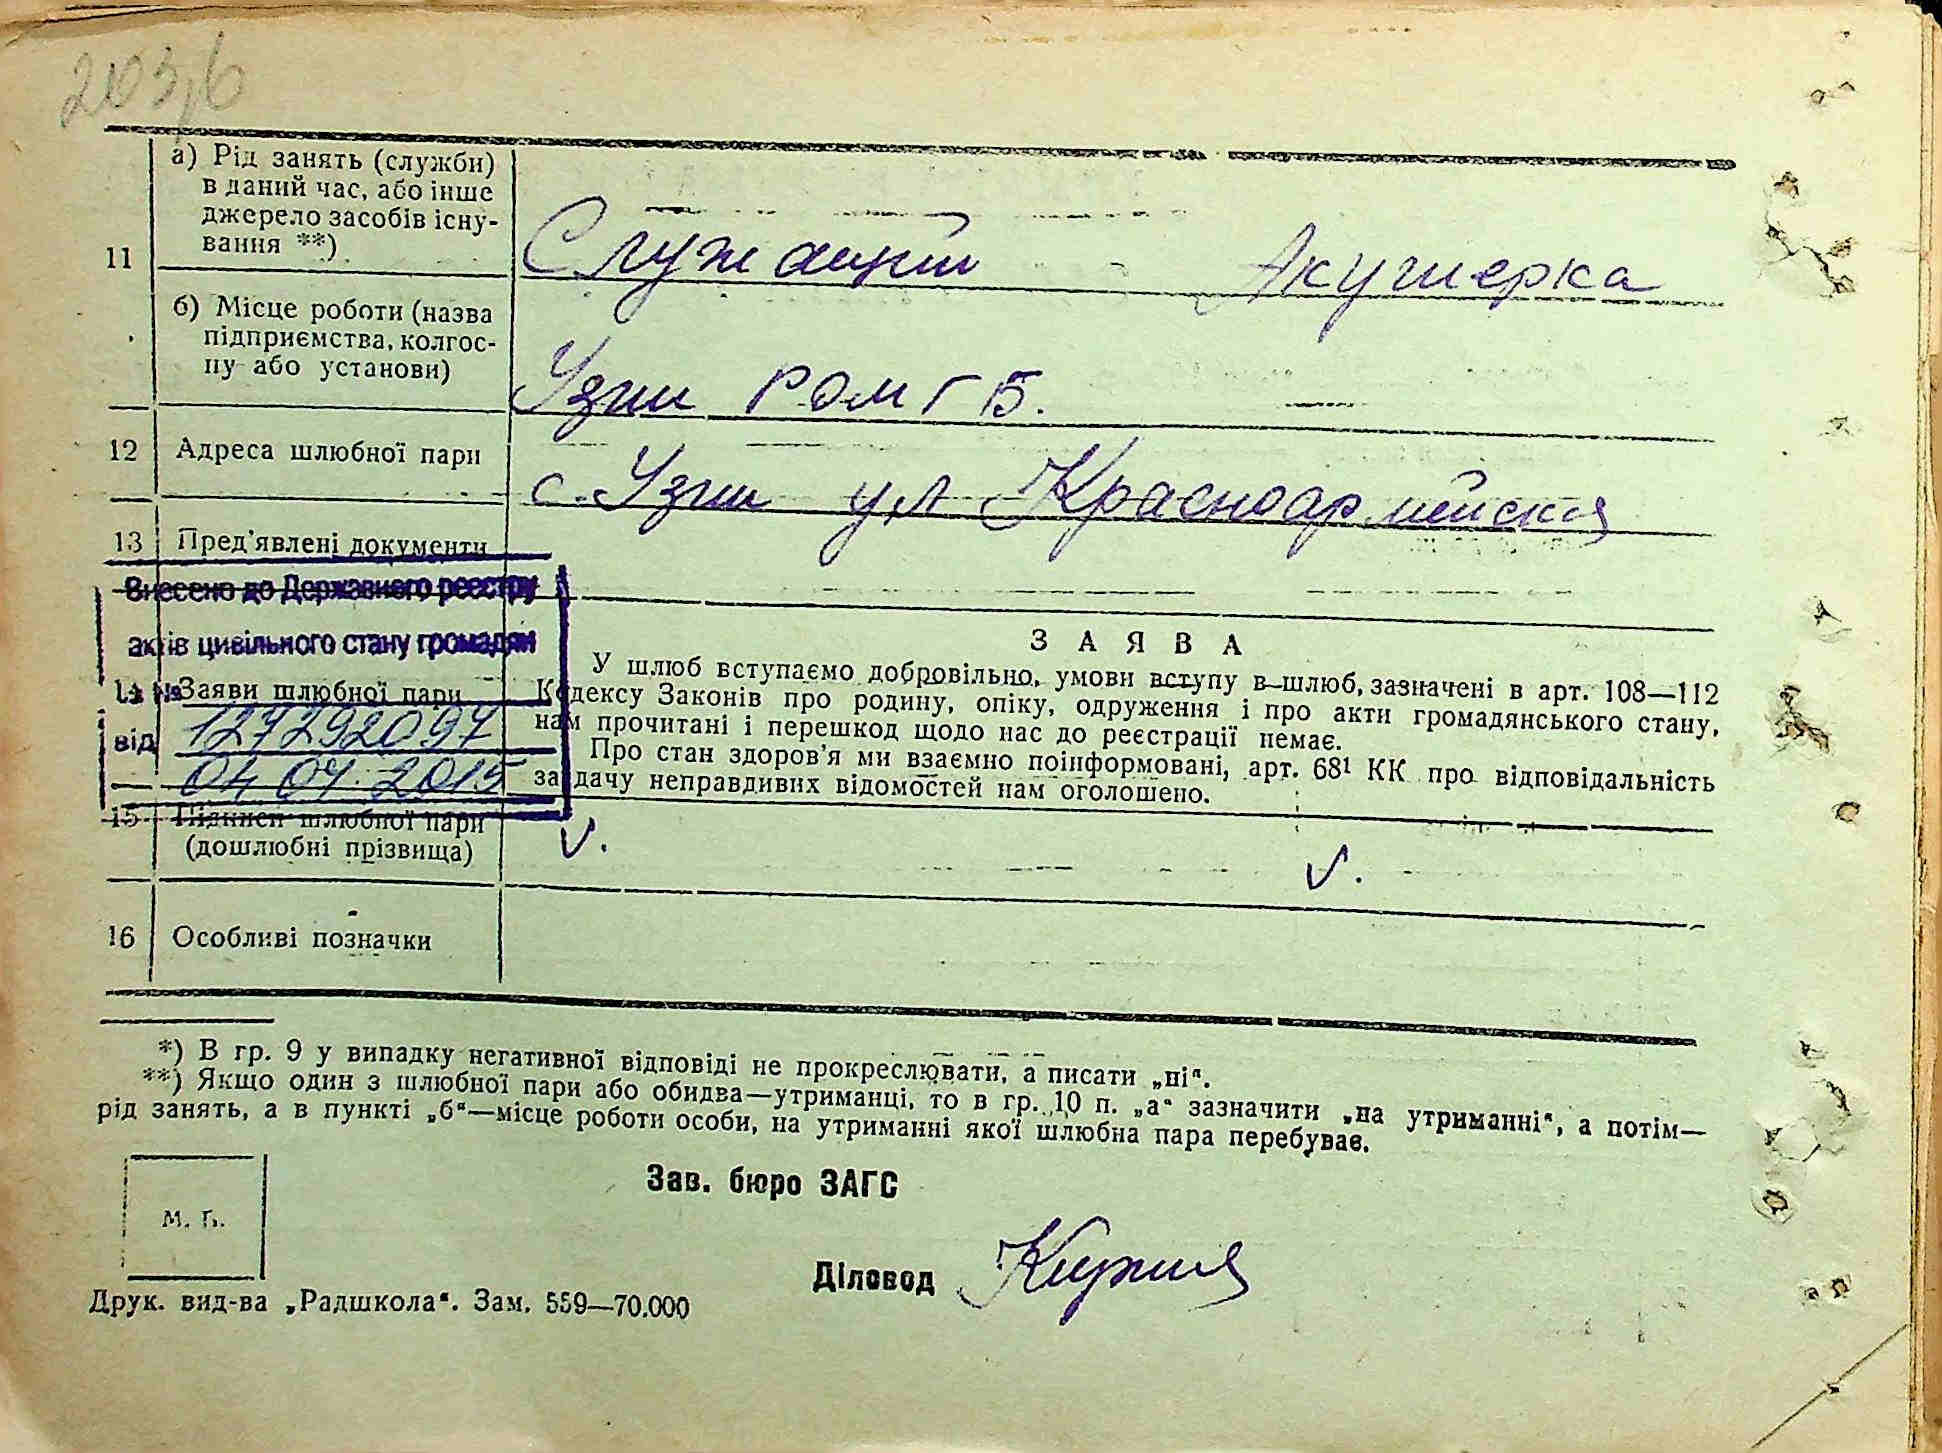 203,6
11
а) Рід занять (служби)
в даний час, або інше
джерело засобів існу-
вання **)
Служащий Акушерка
б) Місце роботи (назва
підприємства, колгос-
пу або установи)
Узин РОМГБ.
12 Адреса шлюбної пари
с. Узин ул Красноармейская
13 Пред’явлені документи
Внесено до Державного реєстру
актів цивільного стану громадян
за №
127292097
від
04 07. 2015
14 Заяви шлюбної пари
ЗАЯВА
У шлюб вступаємо добровільно, умови вступу в шлюб, зазначені в арт. 108—112
Кодексу Законів про родину, опіку, одруження і про акти громадянського стану,
нам прочитані і перешкод щодо нас до реєстрації немає.
Про стан здоров’я ми взаємно поінформовані, арт. 68¹ КК про відповідальність
за дачу неправдивих відомостей нам оголошено.
15 Підписи шлюбної пари
(дошлюбні прізвища)
V. V.
16 Особливі позначки
*) В гр. 9 у випадку негативної відповіді не прокреслювати, а писати „ні“.
**) Якщо один з шлюбної пари або обидва—утриманці, то в гр. 10 п. „а“ зазначити „на утриманні“, а потім—
рід занять, а в пункті „б“—місце роботи особи, на утриманні якої шлюбна пара перебуває.
Зав. бюро ЗАГС
М. П.
Діловод
Друк. вид-ва „Радшкола“. Зам. 559—70.000